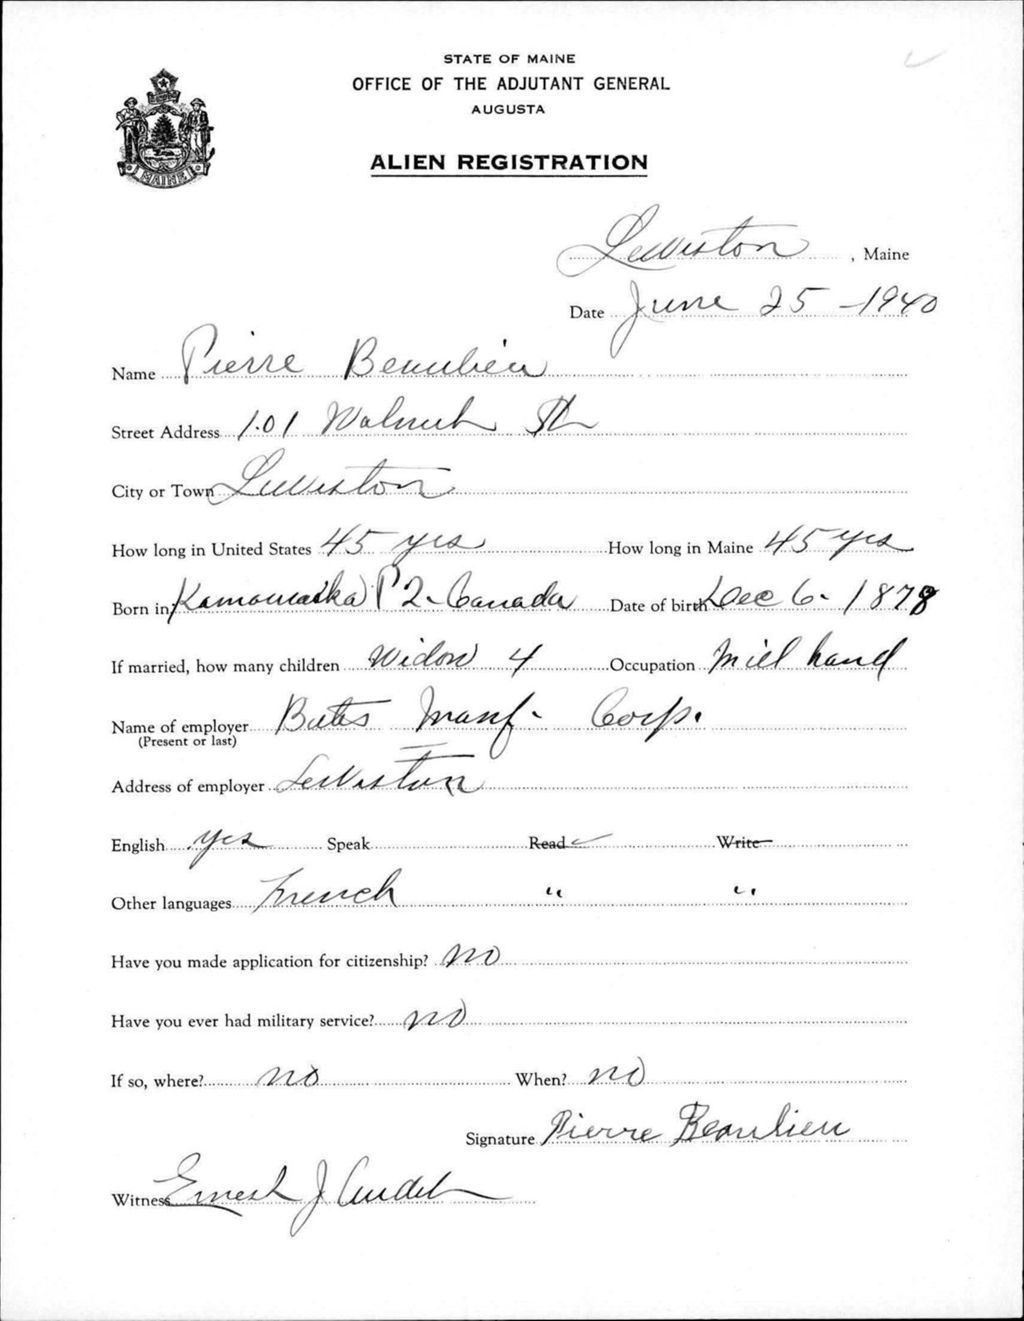 STATE OF MAINE
OFFICE OF THE ADJUTANT GENERAL
AUGUSTA
ALIEN REGISTRATION
MAINE
Lewiston, Maine
Date June 25 - 1940
Name Pierre Beaulieu
Street Address 101 Walnut St
City or Town Lewiston
How long in United States 45 yrs How long in Maine 45 yrs
Born in Kamouraska P Q - Canada Date of birth Dec 6 - 1878
If married, how many children Widow 4 Occupation Mill hand
Name of employer Bates Manf - Corp.
(Present or last)
Address of employer Lewiston
English yes Speak Read ✓ Write
Other languages French " "
Have you made application for citizenship? no
Have you ever had military service? no
If so, where? no When? no
Signature Pierre Beaulieu
Witness Ernest J Audet